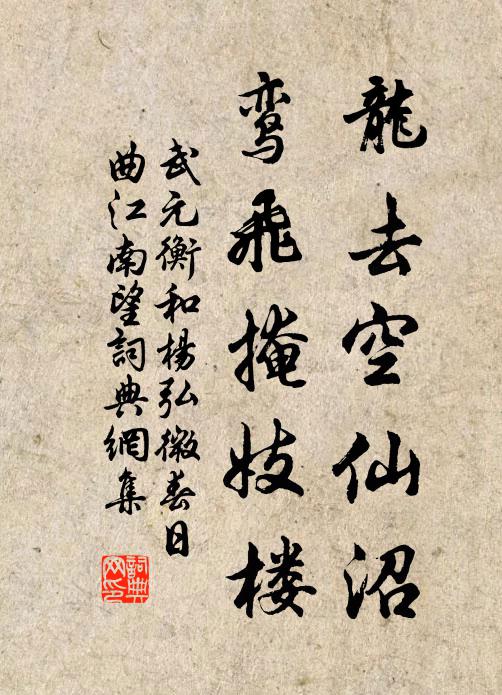 龍去空仙沼
鸾飛掩妓楼
武元衡和楊弘微春日
曲江南望詞典網集
詞典
网印